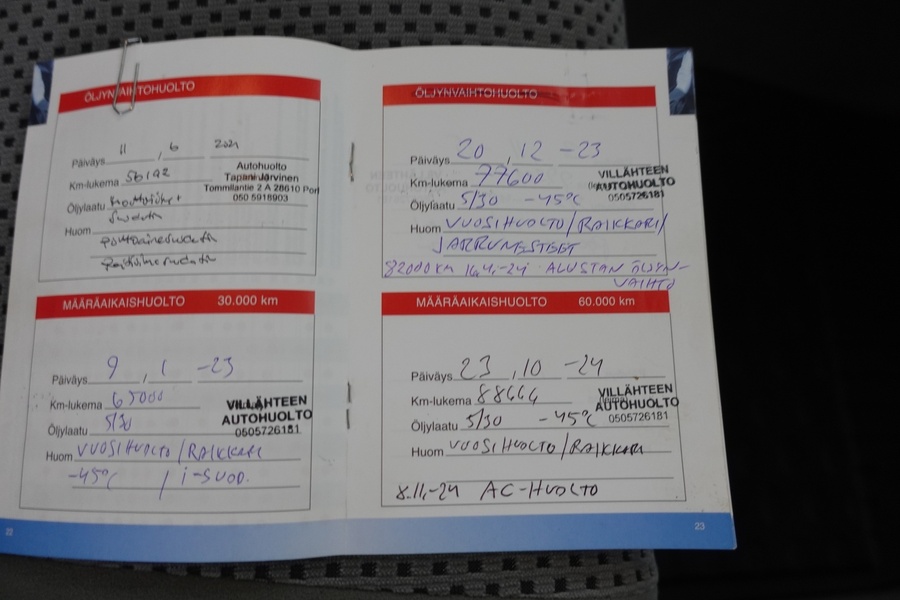 ÖLJYNVAIHTOHUOLTO
Päiväys 11 , 6 2021
Km-lukema 56192
Autohuolto
Tapani Järvinen
Tommilantie 2 A 28610 Pori
050 5918903
Öljylaatu
Huom
MÄÄRÄAIKAISHUOLTO 30.000 km
Päiväys 9 , 1 -23
Km-lukema 65000
Öljylaatu 5/30
VILLÄHTEEN
AUTOHUOLTO
0505726181
Huom VUOSIHUOLTO / RAIKKARI
-45°C / I-SUOD.
22
ÖLJYNVAIHTOHUOLTO
Päiväys 20 , 12 -23
Km-lukema 77600
Öljylaatu 5/30 -45°C
VILLÄHTEEN
AUTOHUOLTO
0505726181
Huom VUOSIHUOLTO / RAIKKARI /
JARRUNESTEET
82000 KM 16.4.-24 ALUSTAN ÖLJYN-
VAIHTO
MÄÄRÄAIKAISHUOLTO 60.000 km
Päiväys 23 , 10 -24
Km-lukema 88664
Öljylaatu 5/30 -45°C
VILLÄHTEEN
AUTOHUOLTO
0505726181
Huom VUOSIHUOLTO / RAIKKARI
8.11.-24 AC-HUOLTO
23